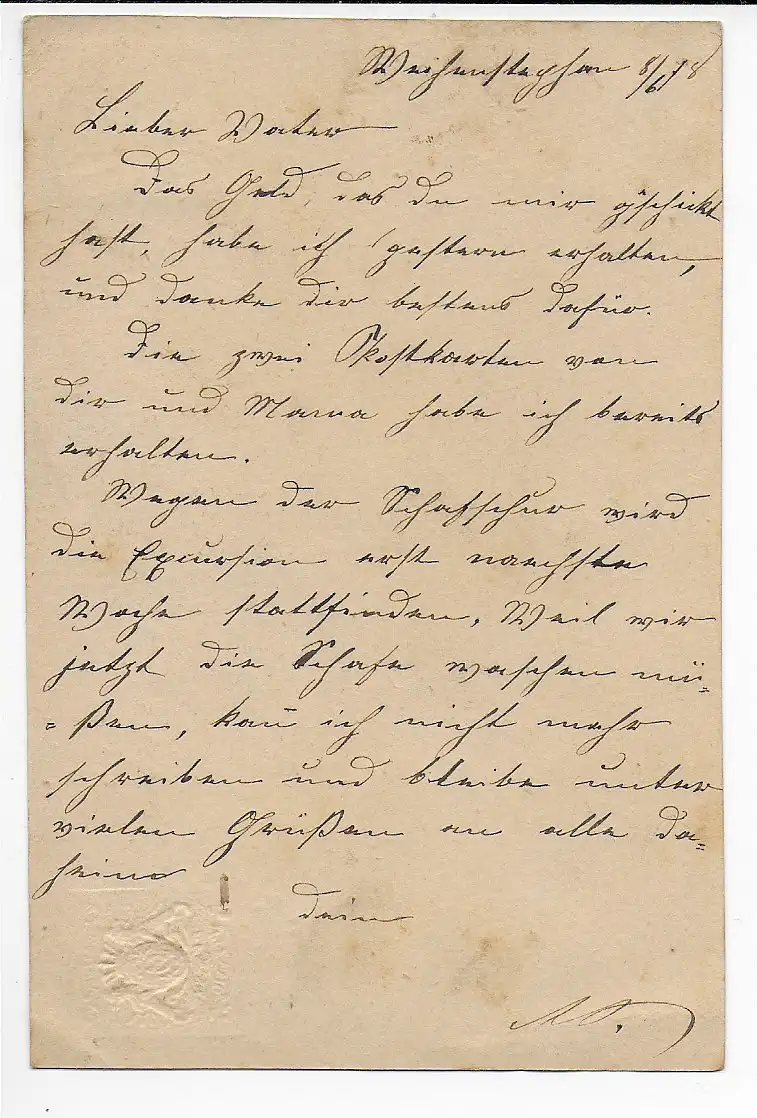 Weihenstephan 8/6 78
Lieber Vater
Das Geld, das du mir g'schickt
hast, habe ich gestern erhalten,
und danke dir bestens dafür.
Die zwei Postkarten von
dir und Mama habe ich bereits
erhalten.
Wegen der Schafschur wird
die Excursion erst naechste
Woche stattfinden. Weil wir
jetzt die Schafe waschen mü=
=ßen, kan̄ ich nicht mehr
schreiben und bleibe unter
vielen Grüßen an alle da=
heim
dein